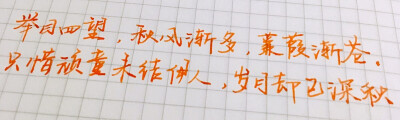 举目四望，秋风渐多，蒹葭渐苍。
只惜顽童未结伊人，岁月却已深秋